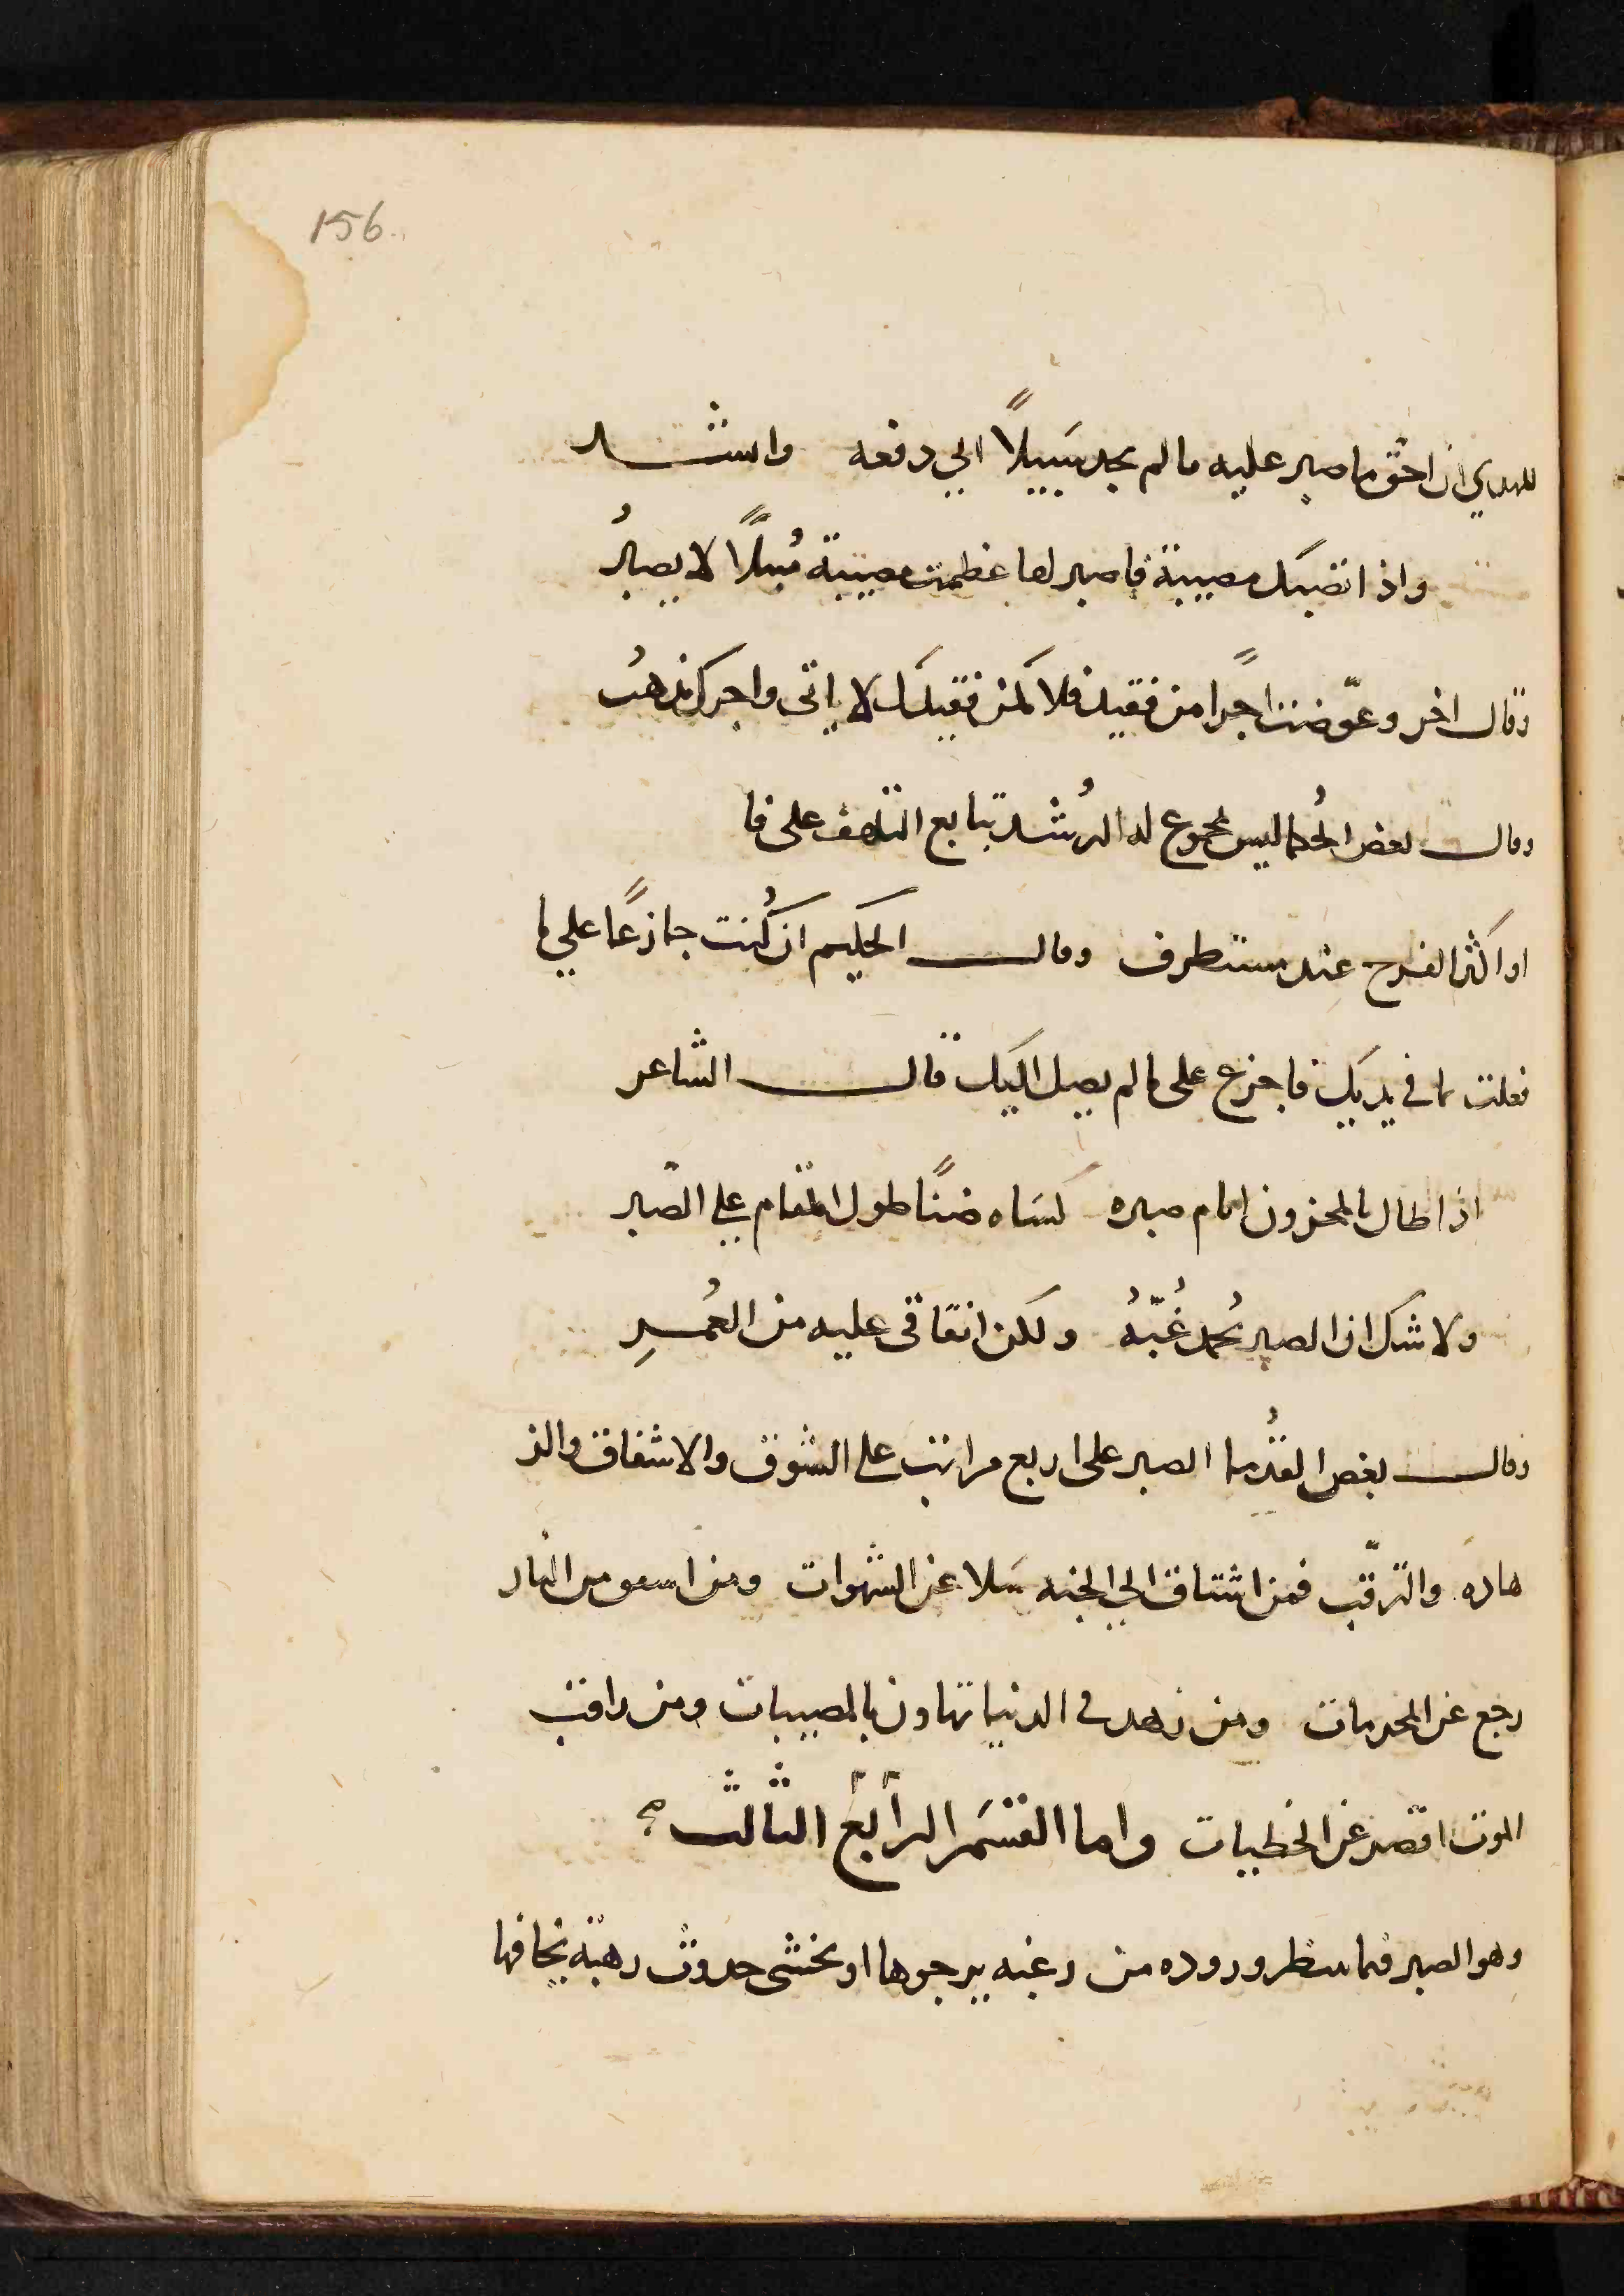 156
للهدي ان احق ما صبر عليه ما لم يجد سَبيلاً الي دفعه وانشد
واذا تصبك مصيبة فاصبر لها عظمت مصيبة مُبتلاً لا يصبرُ
وقال اخر وعوّضت اجرًا من فقيد فلا تكن فقيدك لا ياتى واجرك يذهبُ
وقال بعض الحُكما ليس بمجموع له الرُشد تتابع التلهف على فا
او اكثر الفرح عند مستطرف وقال الحكيم ان كُنت جازعًا علي ما
فعلت ما في يديك فاجزع على ما لم يصل اليك قال الشاعر
اذا طال بالمحزون ايام صبره كسَاه ضنًا طول المقام علي الصّبر
ولا شك ان الصبر يُحمد غُبّهُ ولكن انفاقى عليه من العُمرِ
وقال بعض القُدما الصبر على اربع مراتب على الشوق والاشفاق والز
هاده والترقّب فمن اشتاق الي الجنه سَلا عن الشهوات ومن اسفق من النار
رجع عن المحرمات ومن زهد في الدنيا تهاون بالمصيبات ومن راقب
الموت اقصر عن الخطيات واما القسَم الرابع الثالث
وهو الصبر فيما ينتظر وروده من رغبه يرجوها او يخشى حدوث رهبة يخافها